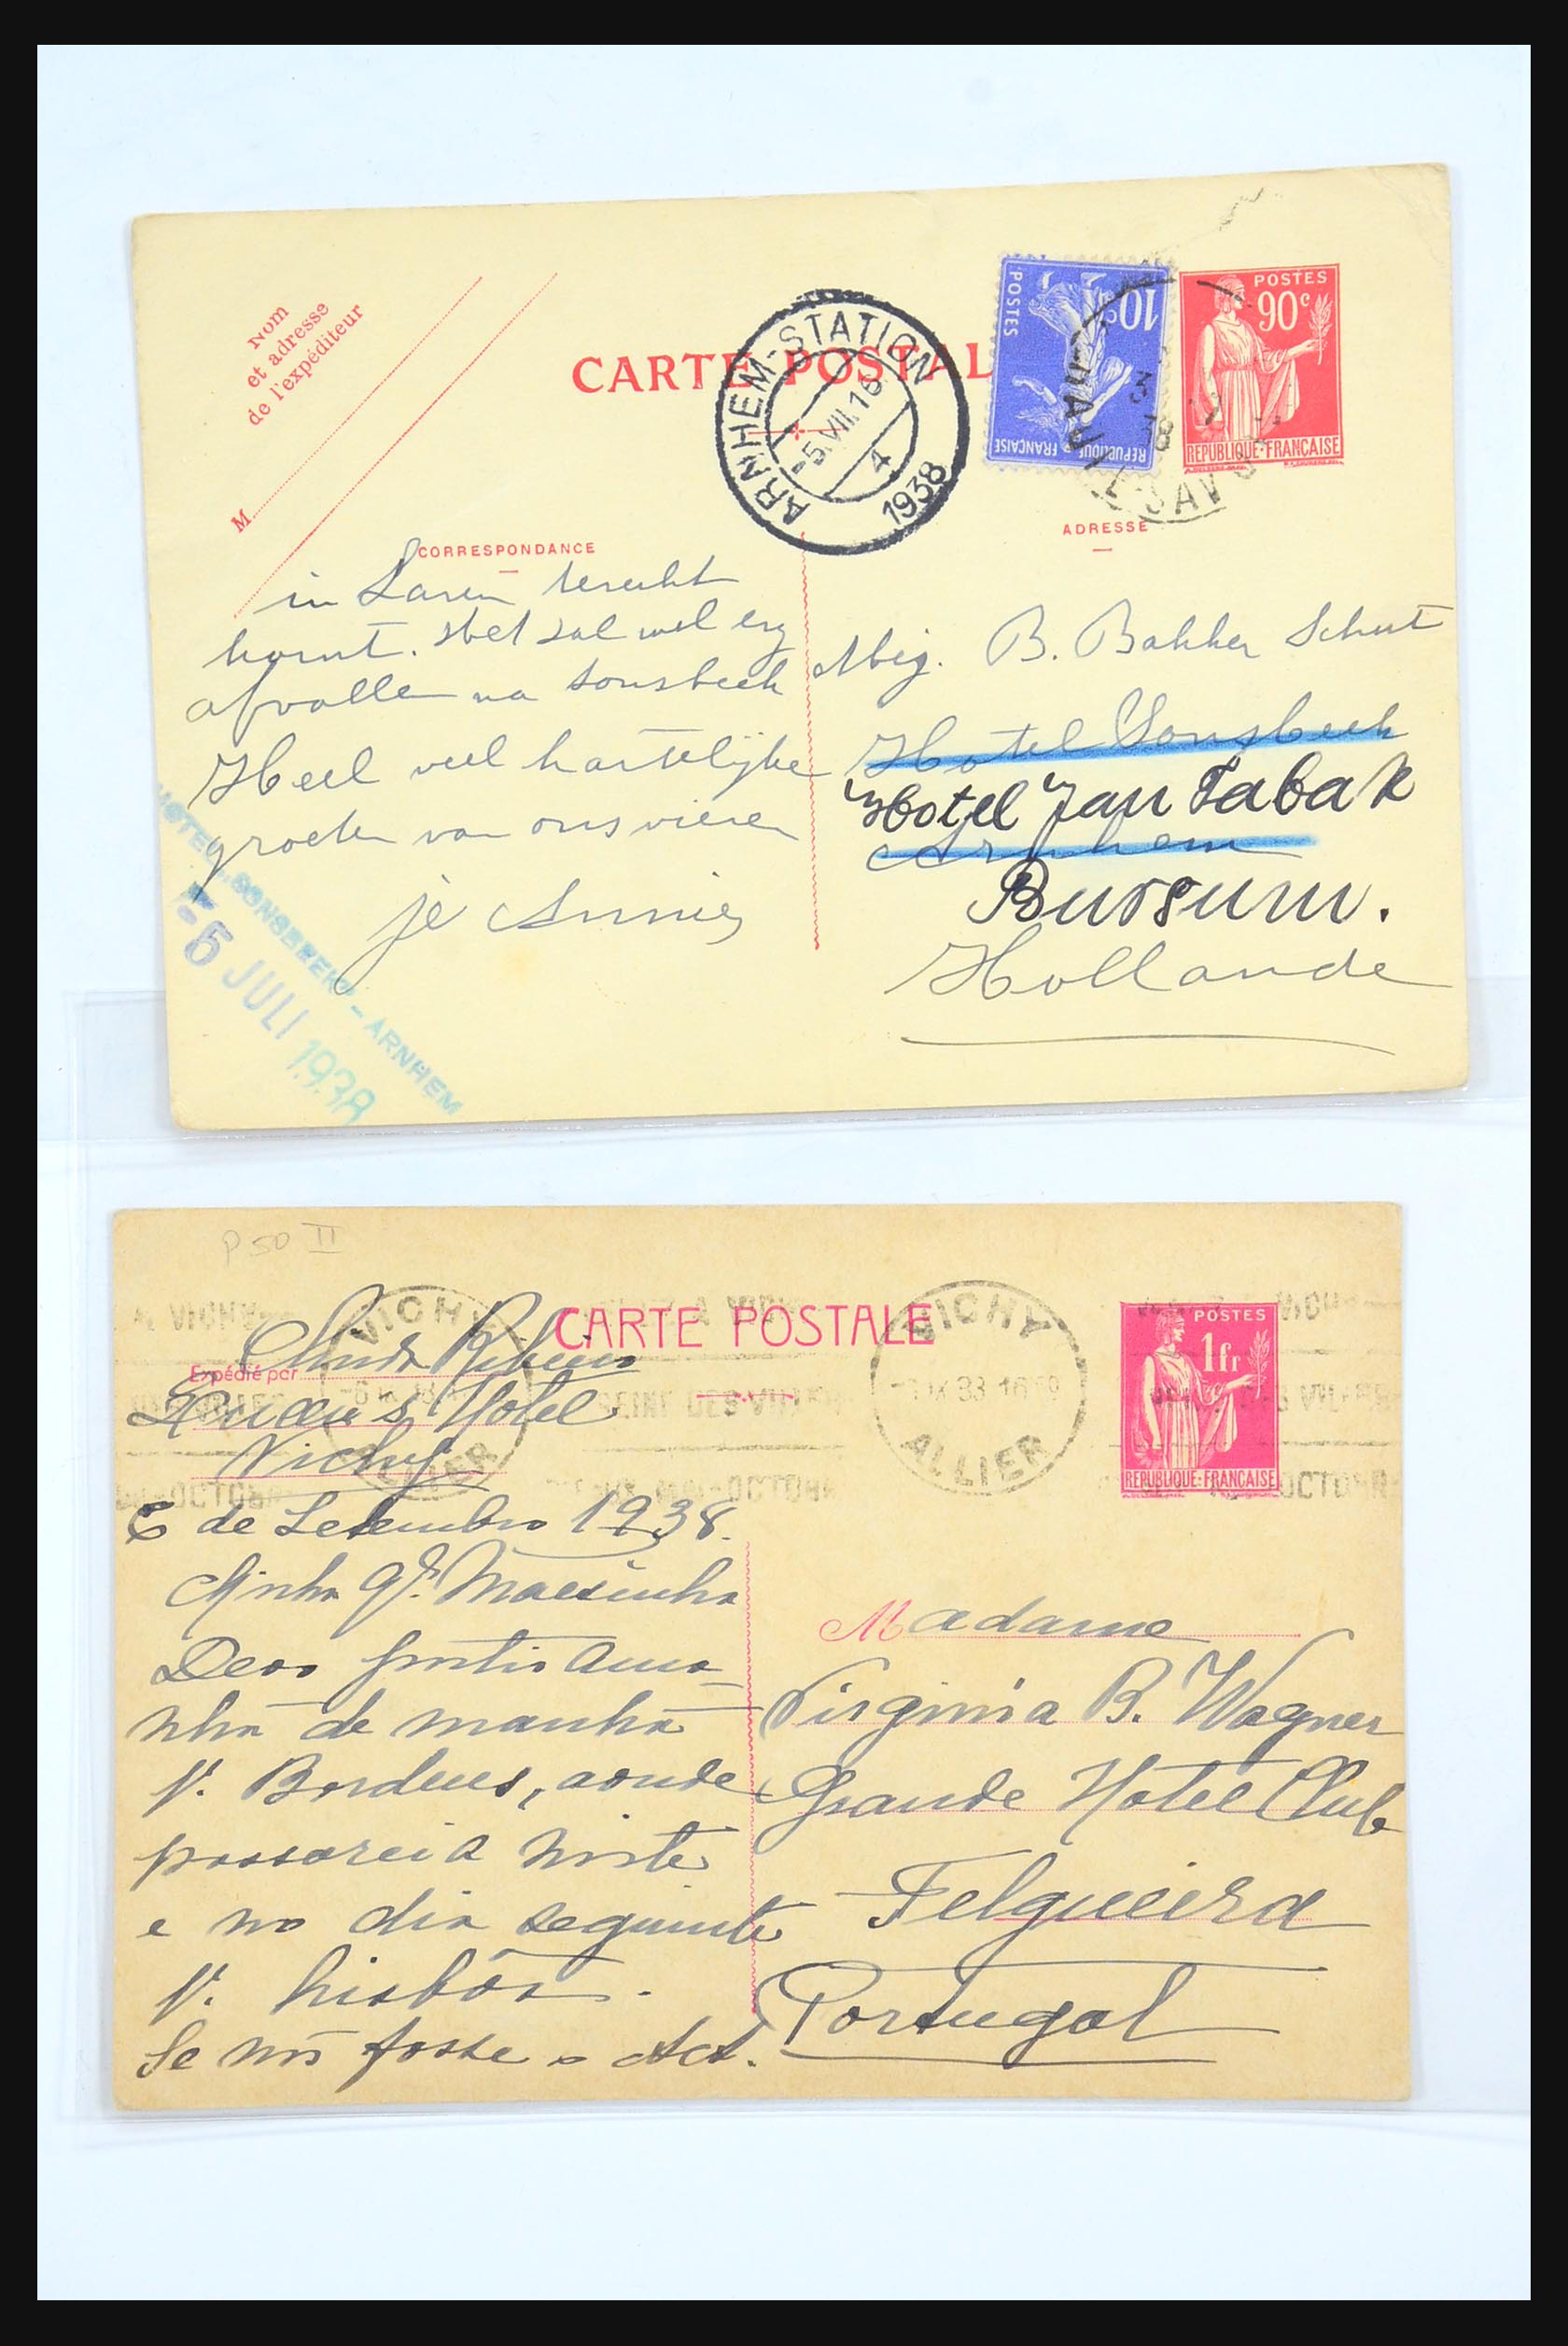 Nom
et adresse
de l'expéditeur
M
CARTE POSTAL
ARNHEM-STATION
-5.VII.16
4
1938
POSTES
10c
REPUBLIQUE FRANCAISE
POSTES
90c
REPUBLIQUE·FRANÇAISE
SAV
CORRESPONDANCE
ADRESSE
in Laren terecht
komt. Het zal wel erg
afvallen na Sonsbeek
Heel veel hartelijke
groeten van ons vieren
je Annie
HOTEL SONSBEEK - ARNHEM
-6 JULI 1938
Mej. B. Bakker Schut
Hotel Sonsbeek
Hotel Jan Tabak
Arnhem
Bussum.
Hollande
P 50 II
CARTE POSTALE
Expédié par
Hotel
Vichy
VICHY
ALLIER
VICHY
ALLIER
POSTES
1fr
REPUBLIQUE·FRANÇAISE
6 de Setembro 1938.
Minha qd. Maesinha
Deve partir ama-
nhã de manhã
p. Bordeus, aonde
passarei a noite
e no dia seguinte
p. Lisbôa.
Se não fosse o
Madame
Virginia B. Wagner
Grande Hotel Club
Felgueira
Portugal